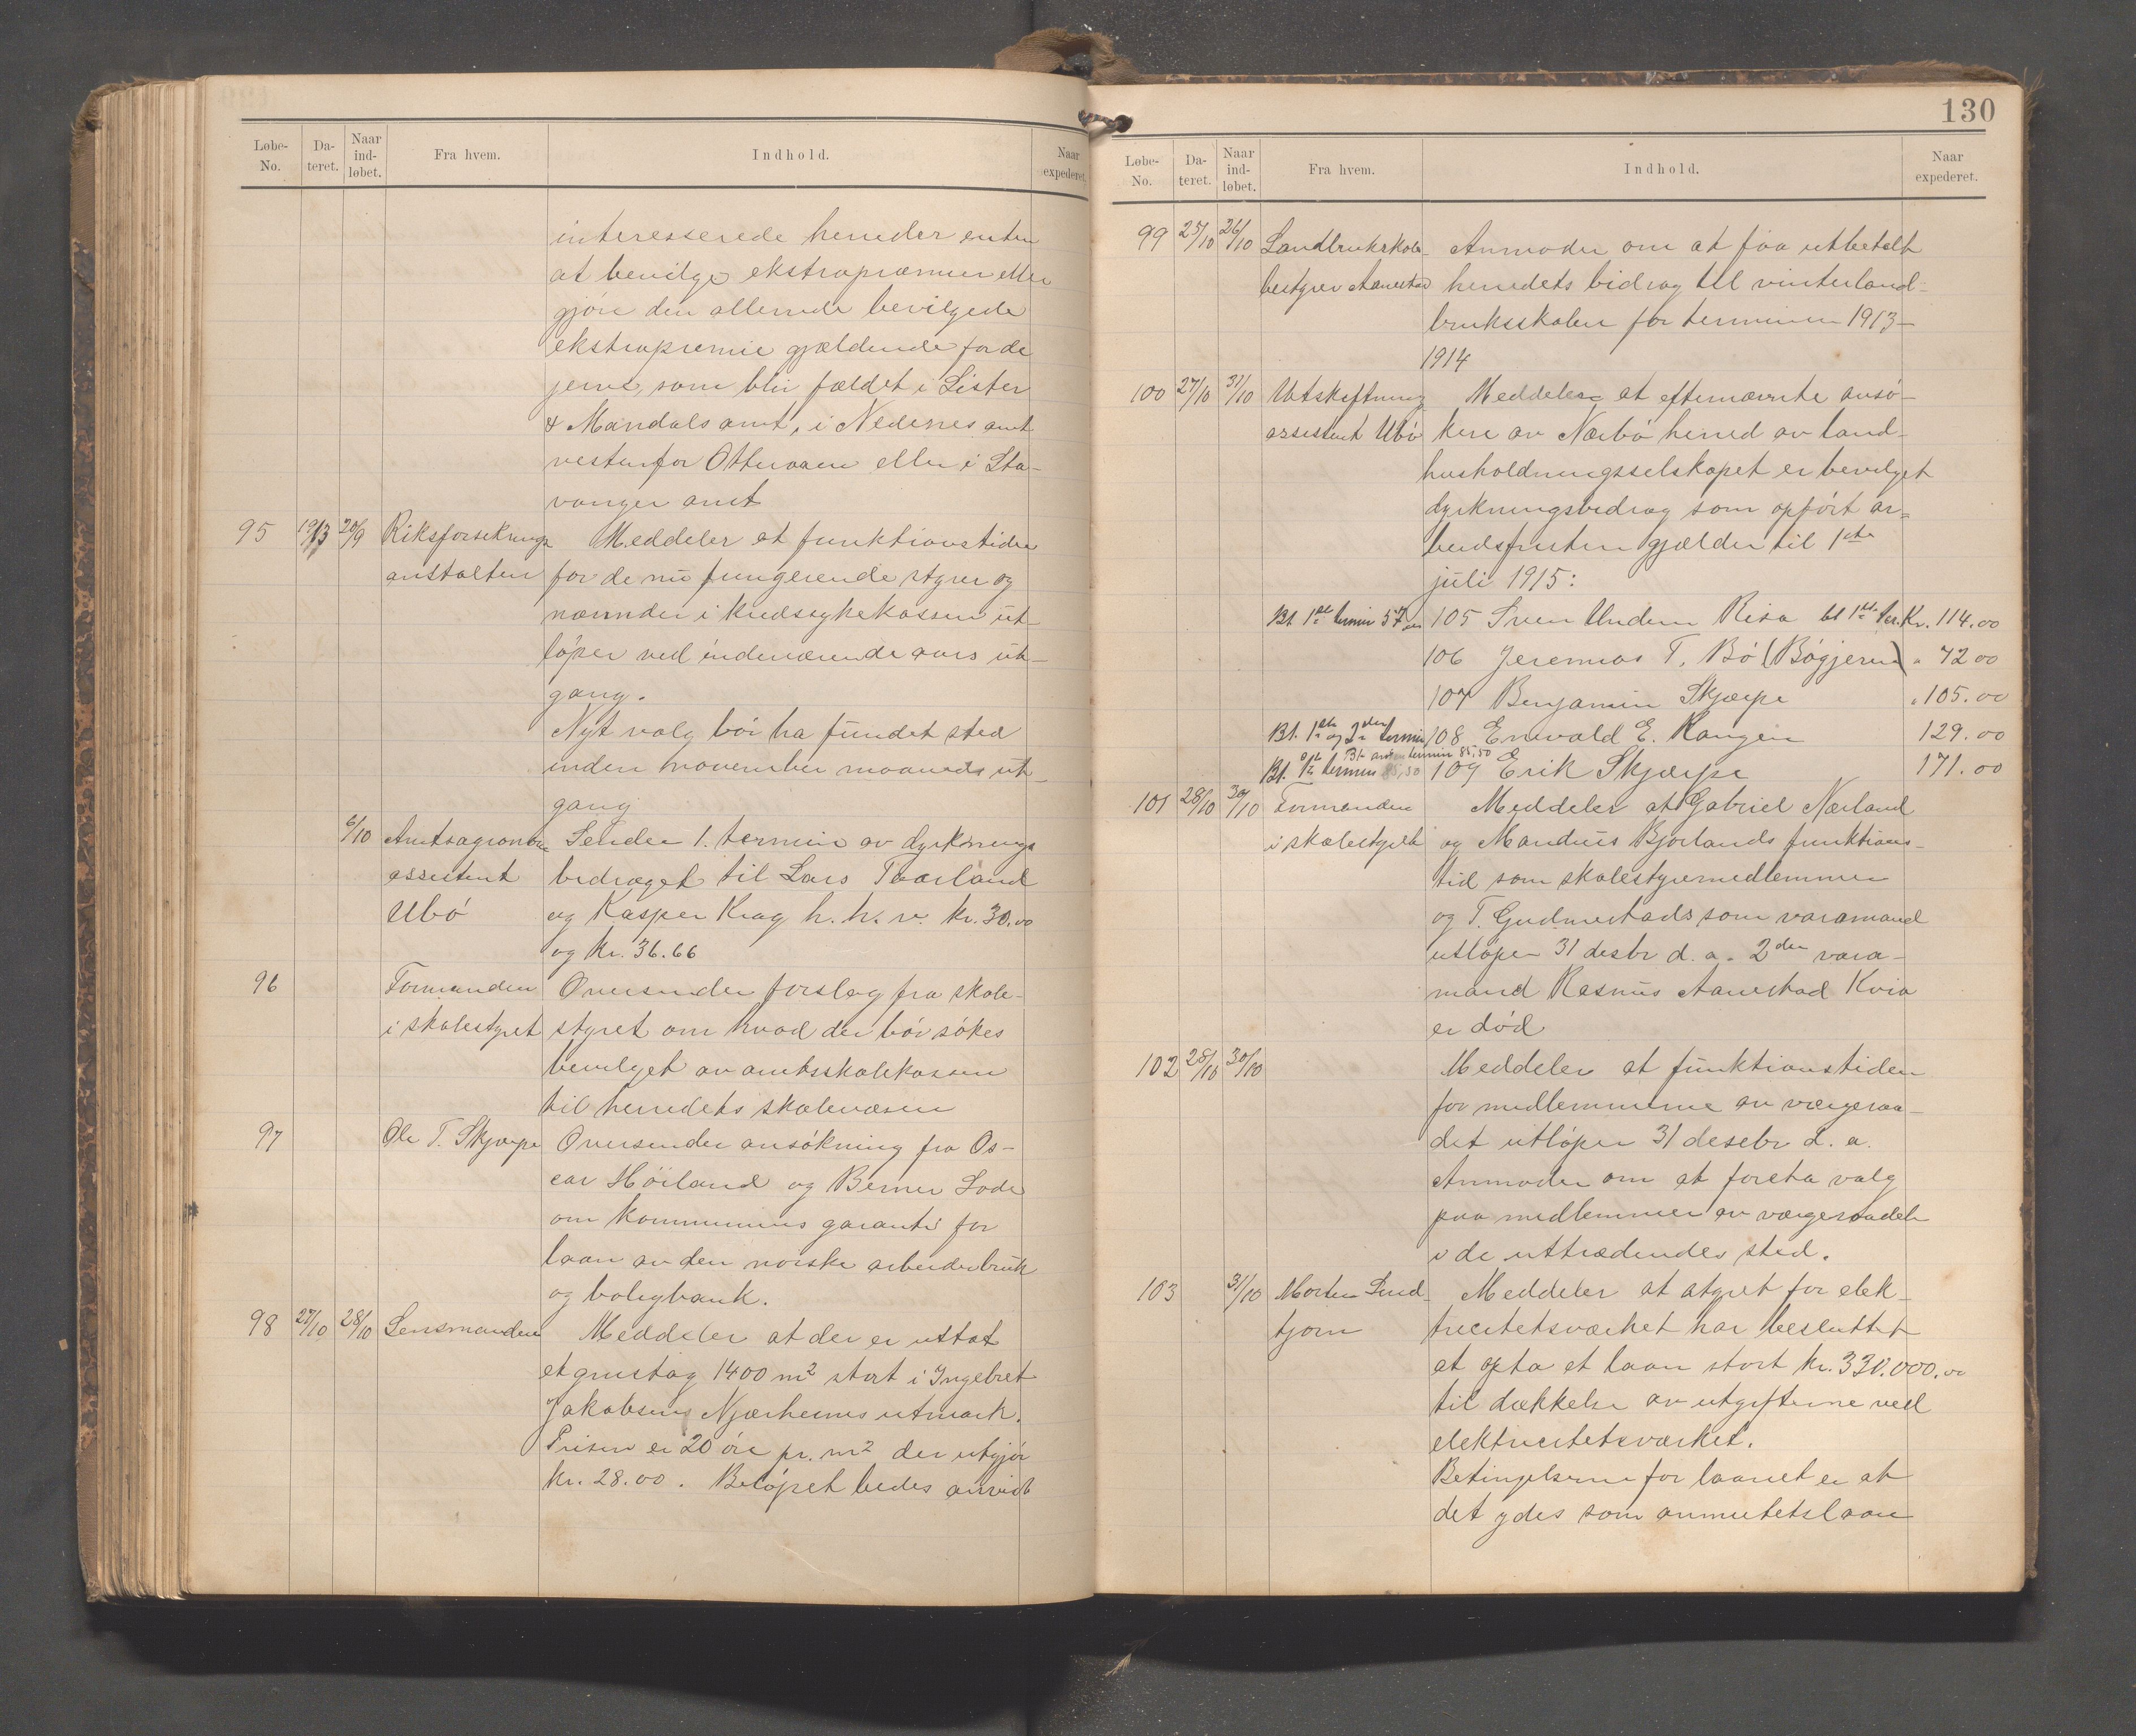 Løbe-No. Dateret. Naar indløbet. Fra hvem. Indhold. Naar expederet.
interesserede herreder enten
at bevilge ekstrapræmier eller
gjøre den allerede bevilgede
ekstrapremie gjældende for de
jerve, som blir fældet i Lister
& Mandals amt, i Nedenes amt
vestenfor Otteraaen eller i Sta-
vanger amt
95 19/13 20/9 Riksforsikrings Meddeler at funktionstiden
anstalten for de nu fungerende styrer og
nævnder i kredssykekassen ut-
løper ved indeværende aars ut-
gang.
Nyt valg bør ha fundet sted
inden november maaneds ut-
gang
6/10 Amtsagronom Sender 1. termin av dyrknings
assistent bidraget til Lars Taarland
Ubø og Kasper Krag h. h. v. kr. 30.00
og kr. 36.66
96 Formanden Oversender forslag fra skole-
i skolestyret styret om hvad der bør søkes
bevilget av amtsskolekassen
til herredets skolevæsen
97 Ole T. Skjærpe Oversender ansøkning fra Os-
car Høiland og Berner Lode
om kommunens garanti for
laan av den norske arbeiderbruk
og boligbank.
98 27/10 28/10 Lensmanden Meddeler at der er uttat
et grustag 1400 m² stort i Ingebret
Jakobsens Njærheims utmark.
Prisen er 20 øre pr. m² der utgjør
kr. 28.00. Beløpet bedes anvist
130
Løbe-No. Dateret. Naar indløbet. Fra hvem. Indhold. Naar expederet.
99 25/10 26/10 Landbrukskole- Anmoder om at faa utbetalt
bestyrer Aanestad herredets bidrag til vinterland-
bruksskolen for terminen 1913-
1914
100 27/10 31/10 Utskiftnings Meddeler at efternævnte ansø-
assistent Ubø kere av Nærbø herred av land-
husholdningsselskapet er bevilget
dyrkningsbidrag som opført ar-
beidsfristen gjælder til 1ste
juli 1915:
Bt. 1ste termin 57 105 Sven Undem Risa bt 1ste ter. Kr. 114.00
106 Jeremias T. Bø (Bøgjeren) " 72 00
107 Benjamin Skjærpe " 105.00
Bt. 1ste og 2den termin 108 Enevald E. Rangen 129.00
Bt. 2den termin 85,50
Bt. 1ste termin 85,50 109 Erik Skjærpe 171.00
101 28/10 30/10 Formanden Meddeler at Gabriel Nærland
i skolestyret og Mandius Bjorlands funktions-
tid som skolestyremedlemmer
og T. Gudmestads som varamand
utløper 31 desbr d. a. 2den vara-
mand Rasmus Aanestad Kvia
er død
102 28/10 30/10 Meddeler at funktionstiden
for medlemmerne av værgeraa-
det utløper 31 desebr d. a.
Anmoder om at foreta valg
paa medlemmer av værgeraadet
i de uttrædendes sted.
103 31/10 Morten Lind- Meddeler at styret for elek-
tjorn tricitetsværket har besluttet
at opta et laan stort kr. 330.000.00
til dækkelse av utgifterne ved
elektricitetsværket.
Betingelserne for laanet er at
det ydes som annuitetslaan